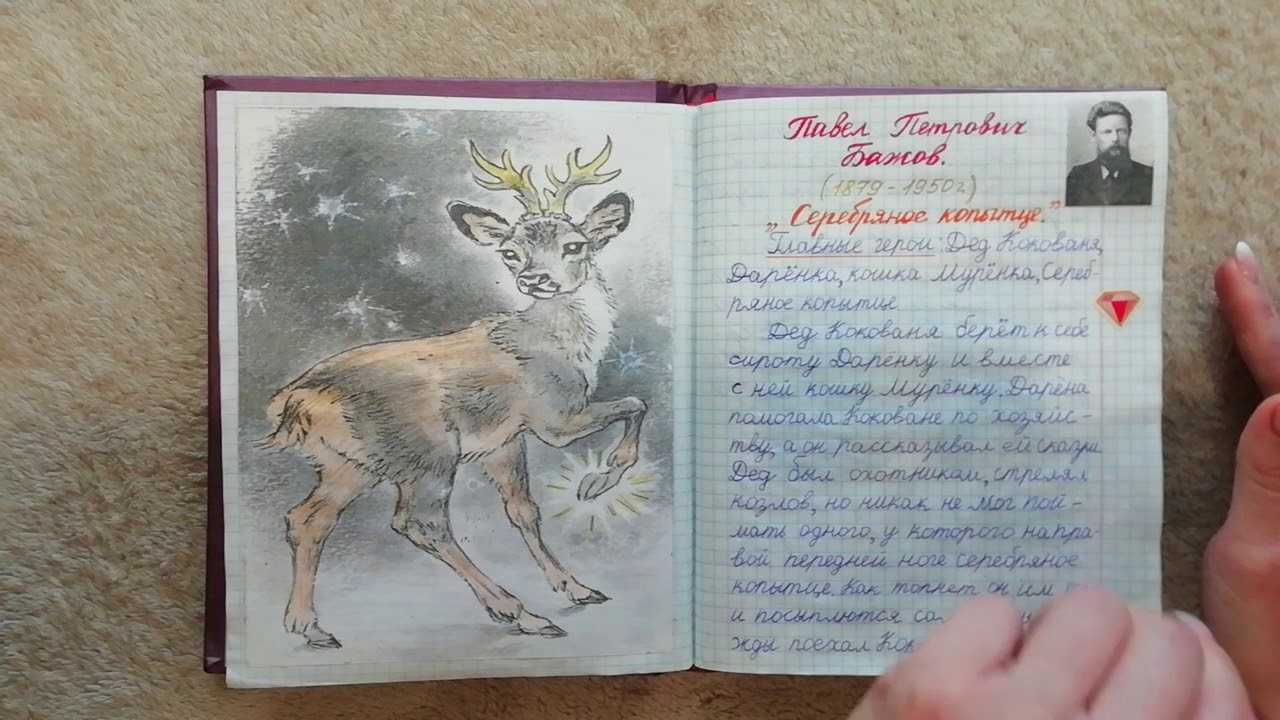 Павел Петрович
Бажов.
(1879-1950г.)
„Серебряное копытце."
Главные герои: Дед Кокованя,
Дарёнка, кошка Мурёнка, Сереб-
ряное копытце.
Дед Кокованя берёт к себе
сироту Даренку и вместе
с ней кошку Мурёнку. Дарёна
помогала Коковане по хозяйс-
тву, а он рассказывал ей сказки.
Дед был охотником, стрелял
козлов, но никак не мог пой-
мать одного, у которого на пра-
вой передней ноге серебряное
копытце. Как топнет он им
и посыплются
жды поехал